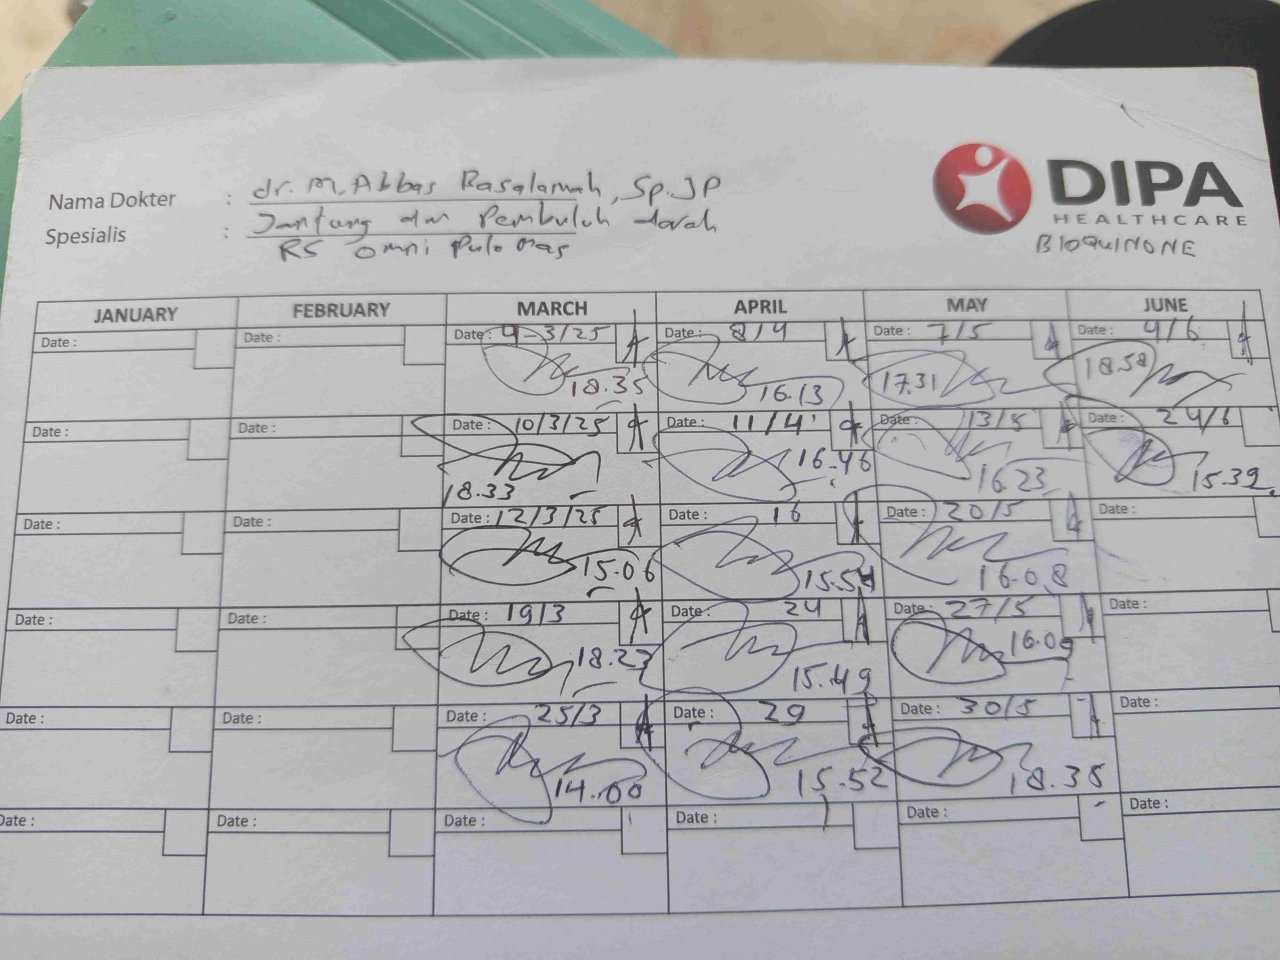 DIPA
HEALTHCARE
BIOQUINONE
Nama Dokter : dr. M. Abbas Basalamah, Sp.JP
Spesialis : Jantung dan Pembuluh darah
RS Omni Pulo Mas
JANUARY FEBRUARY MARCH APRIL MAY JUNE
Date : Date : Date : 4-3/25 Date : 8/4 Date : 7/5 Date : 4/6
18.35 16.13 17.31 18.58
Date : Date : Date : 10/3/25 Date : 11/4 Date : 13/5 Date : 24/6
18.33 16-46 16.23 15.39
Date : Date : Date : 12/3/25 Date : 16 Date : 20/5 Date :
15.06 15.54 16.08
Date : Date : Date : 19/3 Date : 24 Date : 27/5 Date :
18.23 15.49 16.09
Date : Date : Date : 25/3 Date : 29 Date : 30/5 Date :
14.00 15.52 18.38
Date : Date : Date : Date : Date : Date :